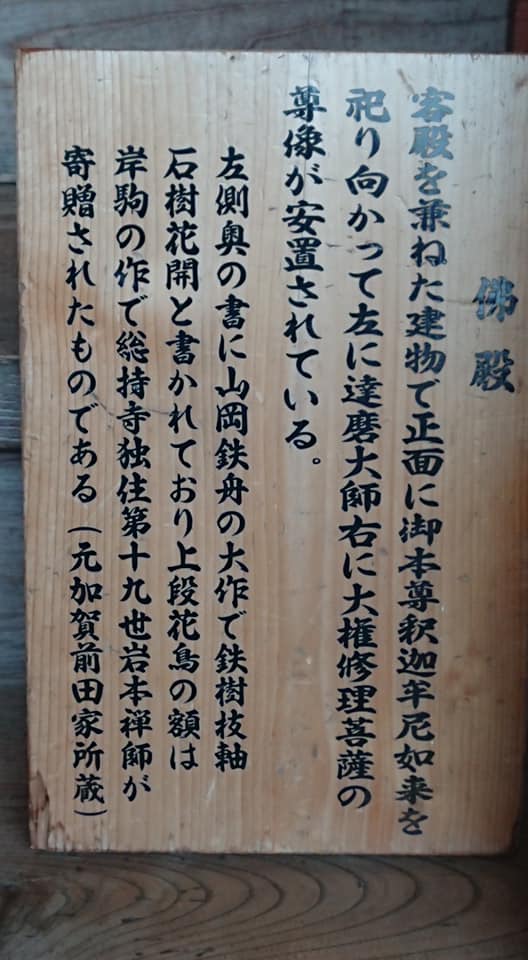 佛殿
客殿を兼ねた建物で正面に御本尊釈迦牟尼如来を
祀り向かって左に達磨大師右に大権修理菩薩の
尊像が安置されている。
左側奥の書に山岡鉄舟の大作で鉄樹枝軸
石樹花開と書かれており上段花鳥の額は
岸駒の作で総持寺独住第十九世岩本禅師が
寄贈されたものである(元加賀前田家所蔵)